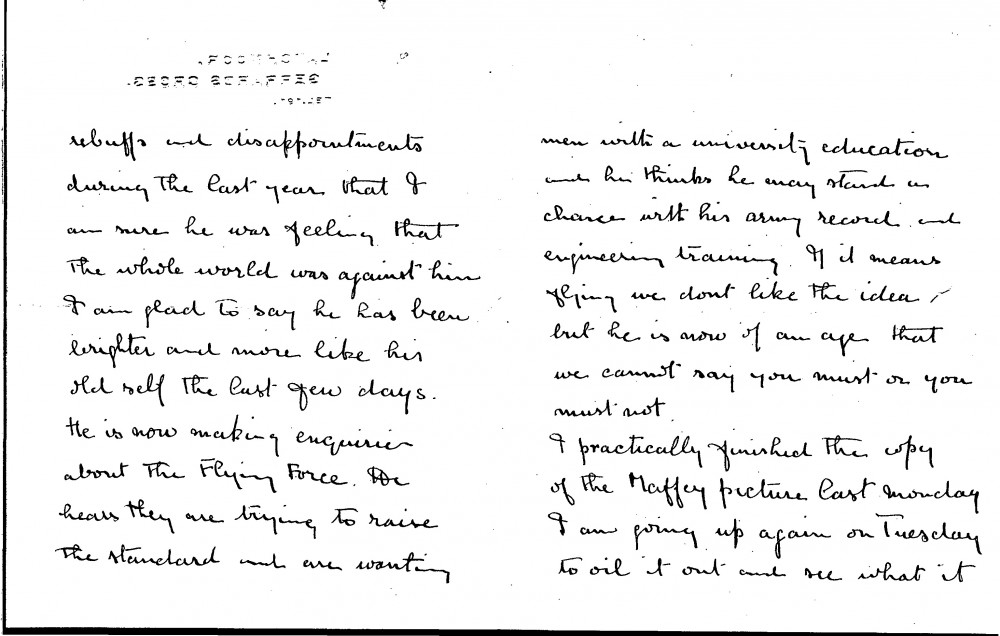 rebuffs and disappointments
during the last year that I
am sure he was feeling that
the whole world was against him
I am glad to say he has been
brighter and more like his
old self the last few days.
He is now making enquiries
about the Flying Force. He
hears they are trying to raise
the standard and are wanting
men with a university education
and he thinks he may stand a
chance with his army record and
engineering training. If it means
flying we dont like the idea,
but he is now of an age that
we cannot say you must or you
must not.
I practically finished the copy
of the Maffey picture last Monday
I am going up again on Tuesday
to oil it out and see what it